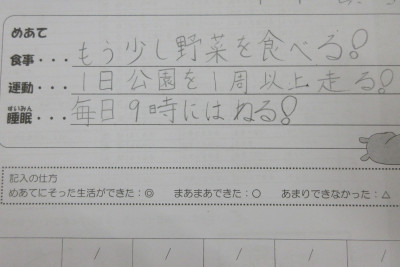 めあて
食事・・・もう少し野菜を食べる!
運動・・・1日公園を1周以上走る!
すいみん
睡眠・・・毎日9時にはねる!
記入の仕方
めあてにそった生活ができた:◎ まあまあできた:○ あまりできなかった:△
/ / / / /